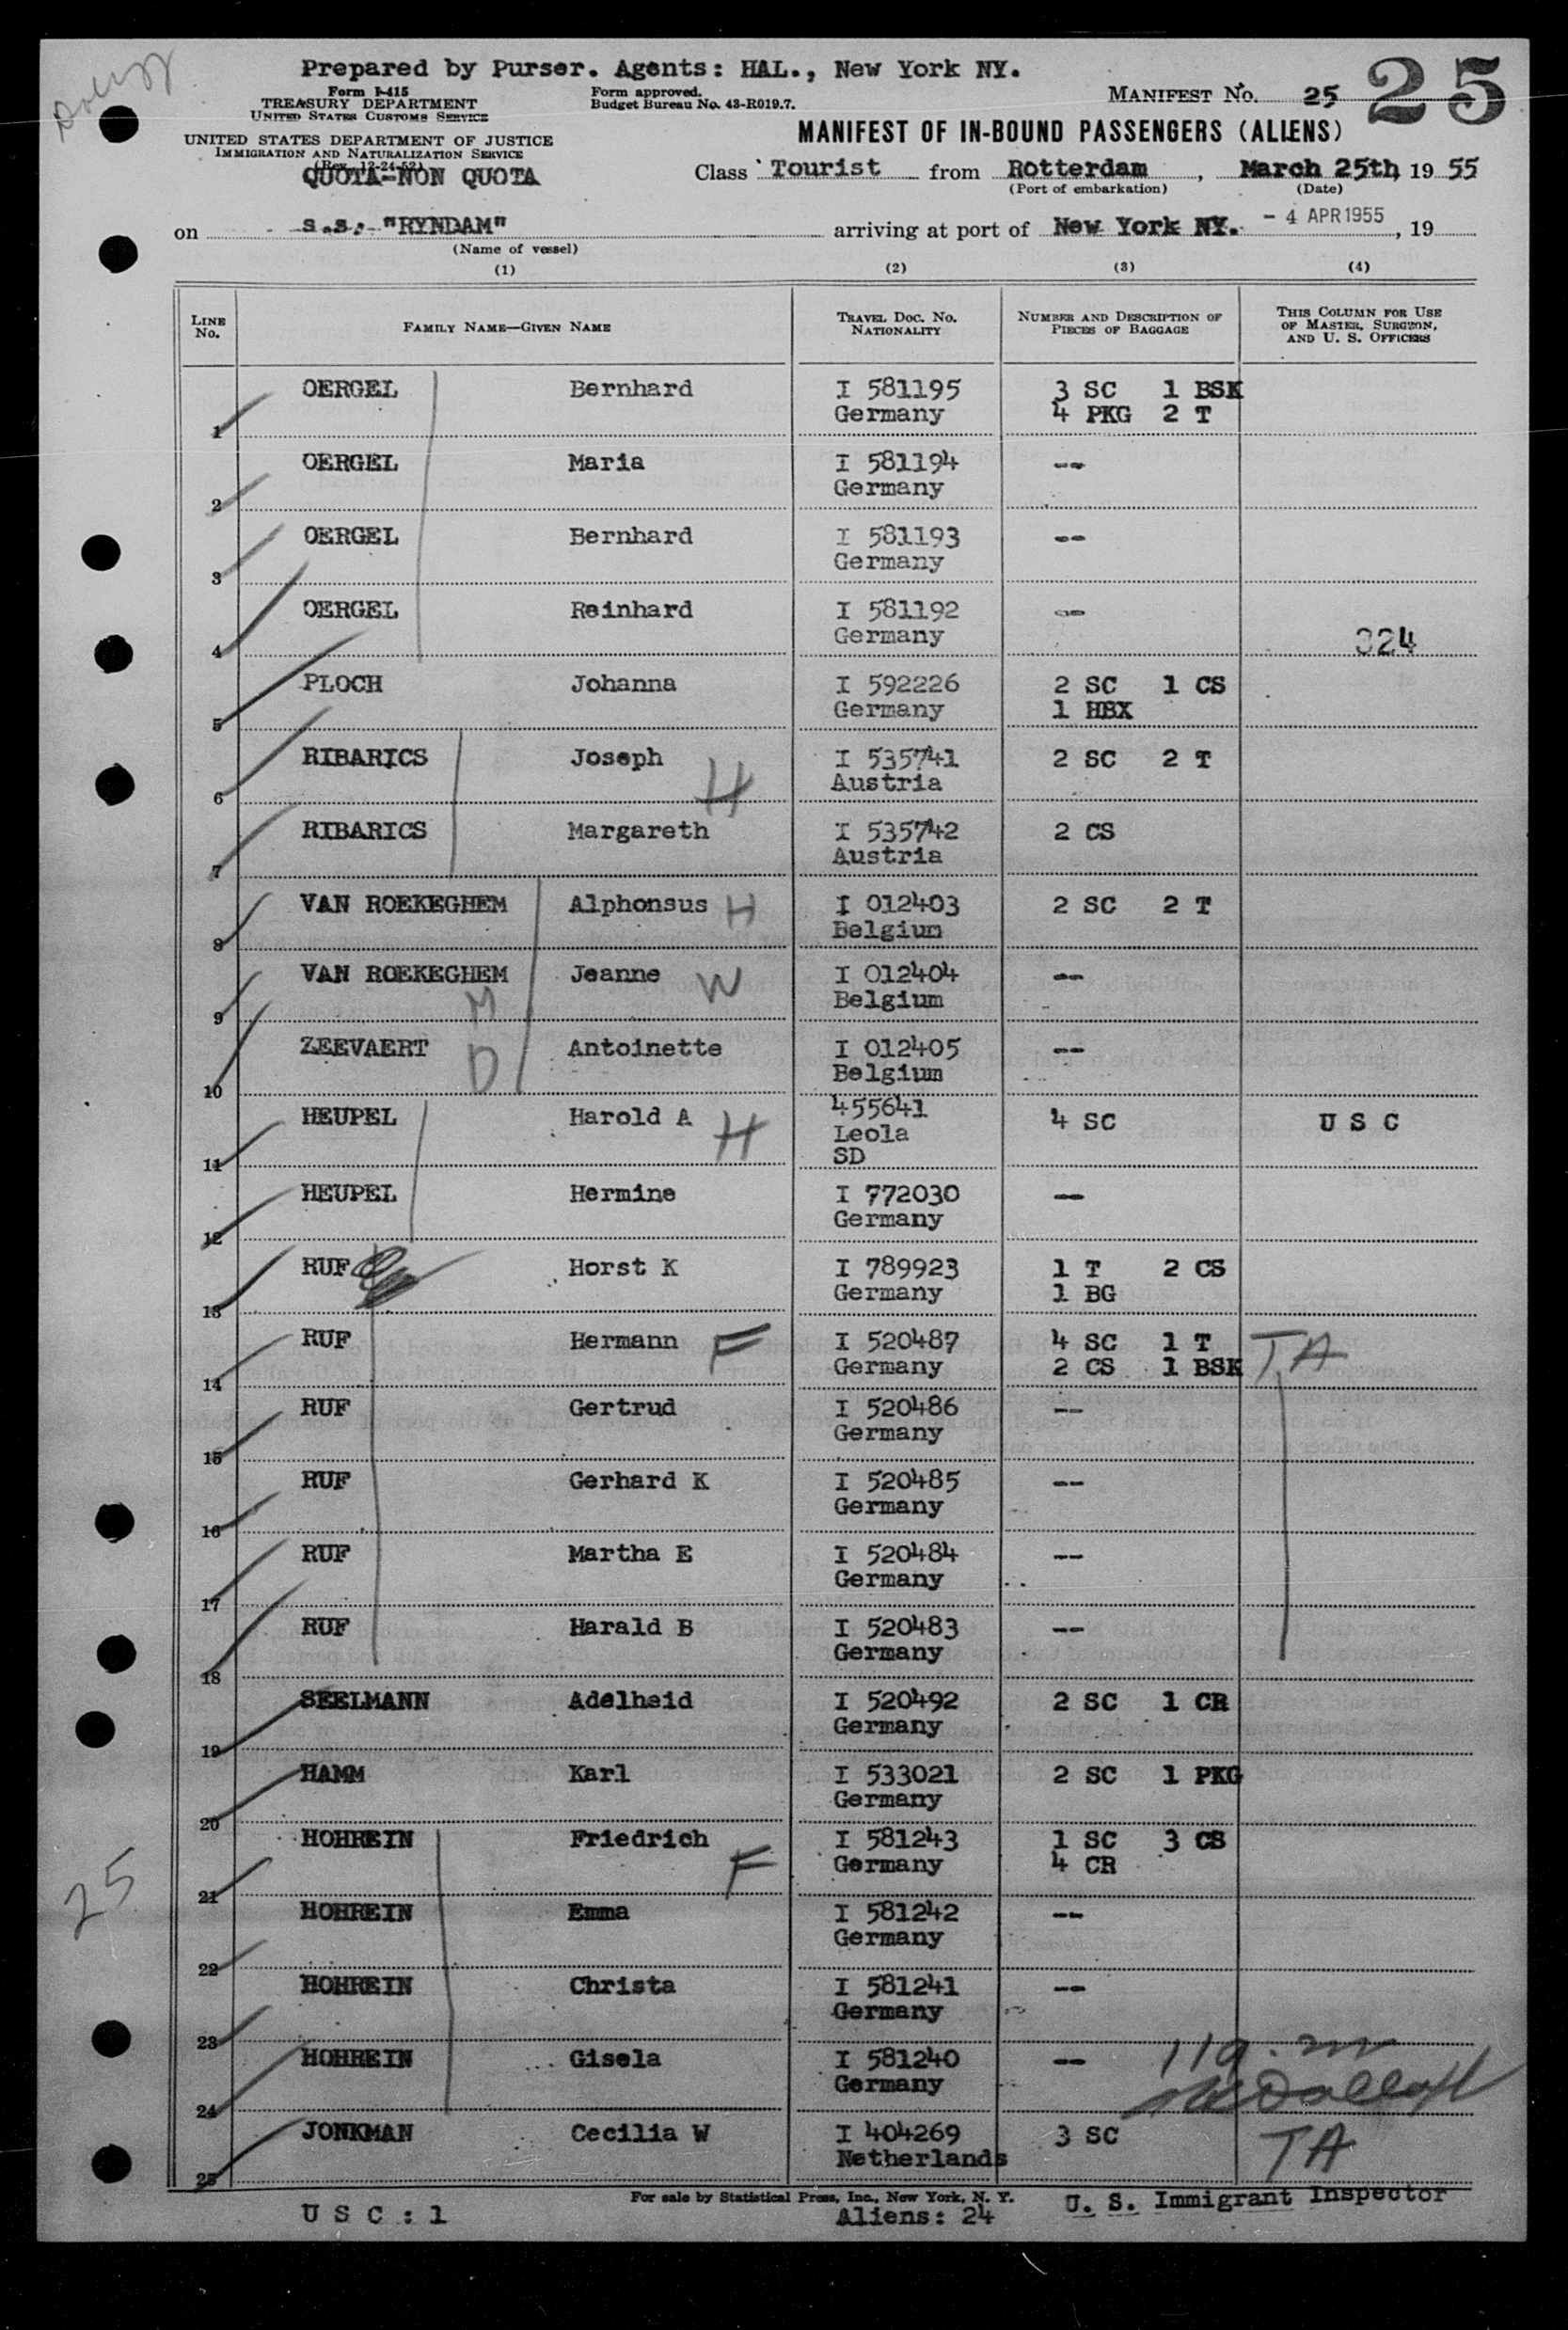 Prepared by Purser. Agents: HAL., New York NY.
Form I-415
TREASURY DEPARTMENT
UNITED STATES CUSTOMS SERVICE
Form approved.
Budget Bureau No. 43-R019.7.
MANIFEST No. 25
25
UNITED STATES DEPARTMENT OF JUSTICE
IMMIGRATION AND NATURALIZATION SERVICE
(Rev. 12-24-52)
QUOTA-NON QUOTA
MANIFEST OF IN-BOUND PASSENGERS (ALIENS)
Class Tourist from Rotterdam, March 25th, 19 55
(Port of embarkation) (Date)
on s.s. "RYNDAM" arriving at port of New York NY. - 4 APR 1955, 19
(Name of vessel)
(1) (2) (3) (4)
LINE No. FAMILY NAME—GIVEN NAME TRAVEL DOC. No. NATIONALITY NUMBER AND DESCRIPTION OF PIECES OF BAGGAGE THIS COLUMN FOR USE OF MASTER, SURGEON, AND U. S. OFFICERS
OERGEL Bernhard I 581195 3 SC 1 BSK
1 Germany 4 PKG 2 T
OERGEL Maria I 581194 --
2 Germany
OERGEL Bernhard I 581193 --
3 Germany
OERGEL Reinhard I 581192 --
4 Germany 324
PLOCH Johanna I 592226 2 SC 1 CS
5 Germany 1 HBX
RIBARICS Joseph H I 535741 2 SC 2 T
6 Austria
RIBARICS Margareth I 535742 2 CS
7 Austria
VAN ROEKEGHEM Alphonsus H I 012403 2 SC 2 T
8 Belgium
VAN ROEKEGHEM Jeanne W I 012404 --
9 M Belgium
ZEEVAERT D Antoinette I 012405 --
10 Belgium
HEUPEL Harold A H 455641 4 SC U S C
Leola
11 SD
HEUPEL Hermine I 772030 --
12 Germany
RUF Horst K I 789923 1 T 2 CS
13 Germany 1 BG
RUF Hermann F I 520487 4 SC 1 T TA
14 Germany 2 CS 1 BSK
RUF Gertrud I 520486 --
15 Germany
RUF Gerhard K I 520485 --
16 Germany
RUF Martha E I 520484 --
17 Germany
RUF Harald B I 520483 --
18 Germany
SEELMANN Adelheid I 520492 2 SC 1 CR
19 Germany
HAMM Karl I 533021 2 SC 1 PKG
20 Germany
HOHREIN Friedrich F I 581243 1 SC 3 CS
21 Germany 4 CR
25
HOHREIN Emma I 581242 --
22 Germany
HOHREIN Christa I 581241 --
23 Germany
HOHREIN Gisela I 581240 --
24 Germany
JONKMAN Cecilia W I 404269 3 SC TA
25 Netherlands
For sale by Statistical Press, Inc., New York, N. Y.
U S C : 1 Aliens: 24 U. S. Immigrant Inspector